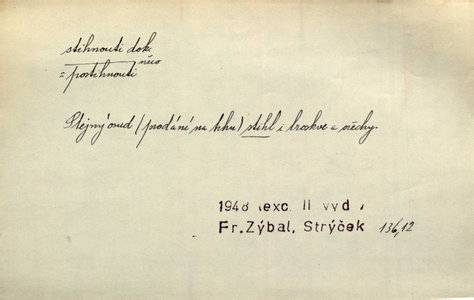 stihnouti dok.
něco
= postihnouti
Stejný osud (prodání na trhu) stihl i broskve a ořechy.
1948 (exc. II vyd.)
Fr. Zýbal, Strýček 136,12